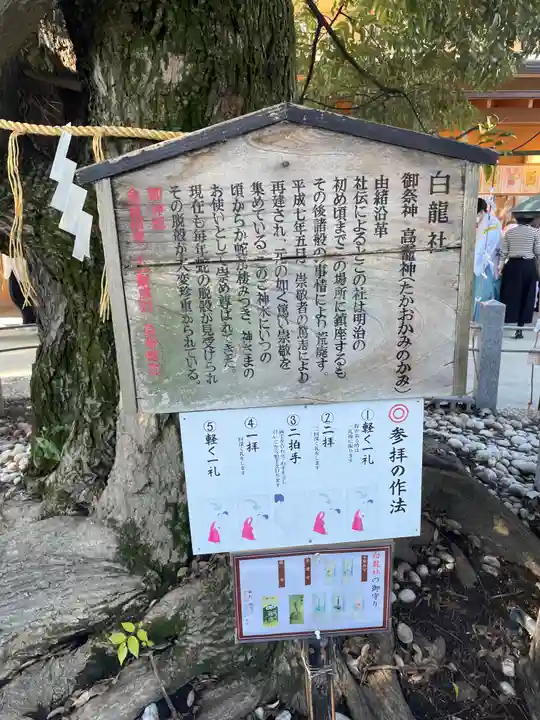 白龍社
御祭神 高龗神(たかおかみのかみ)
由緒沿革
社伝によるとこの社は明治の
初め頃までこの場所に鎮座するも
その後諸般の事情により荒廃す。
平成七年五月、崇敬者の篤志により
再建され、元の如く篤い崇敬を
集めている。このご神木にいつの
頃からか蛇が棲みつき、神さまの
お使いとして崇め尊ばれてきた。
現在も毎年蛇の脱殻が見受けられ
その脱殻が大変珍重がられている。
◎参拝の作法
①軽く一礼
②二拝
③二拍手
④一拝
⑤軽く一礼
白龍社の御守り